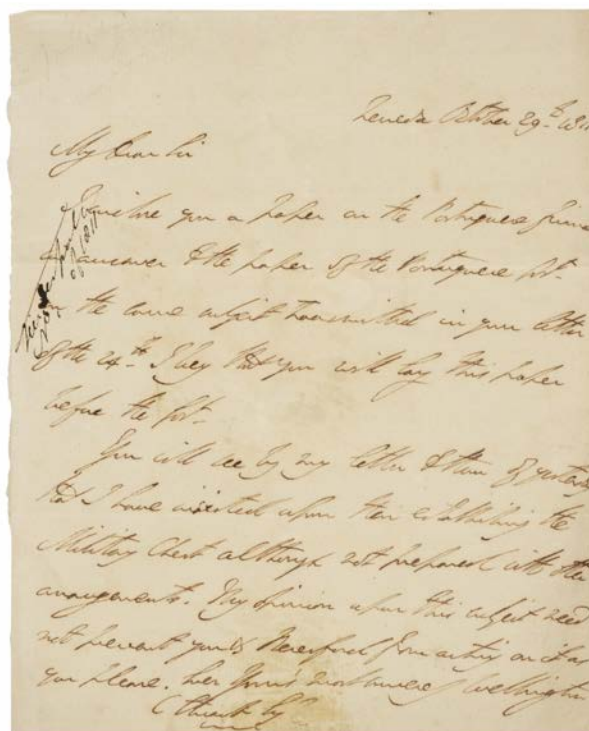 Freneda October 29th 1811
My Dear Sir
I enclose you a paper on the Portuguese Finance
in answer to the paper of the Portuguese Govt.
on the same subject transmitted in your letter
of the 24th. I beg that you will lay this paper
before the Govt.
You will see by my letter to them of yesterday
that I have insisted upon their establishing the
Military Chest although not prepared with their
arrangements. My opinion upon this subject need
not prevent you & Beresford from acting on it as
you please. Ever Yours most sincerely Wellington
C Stuart Esq